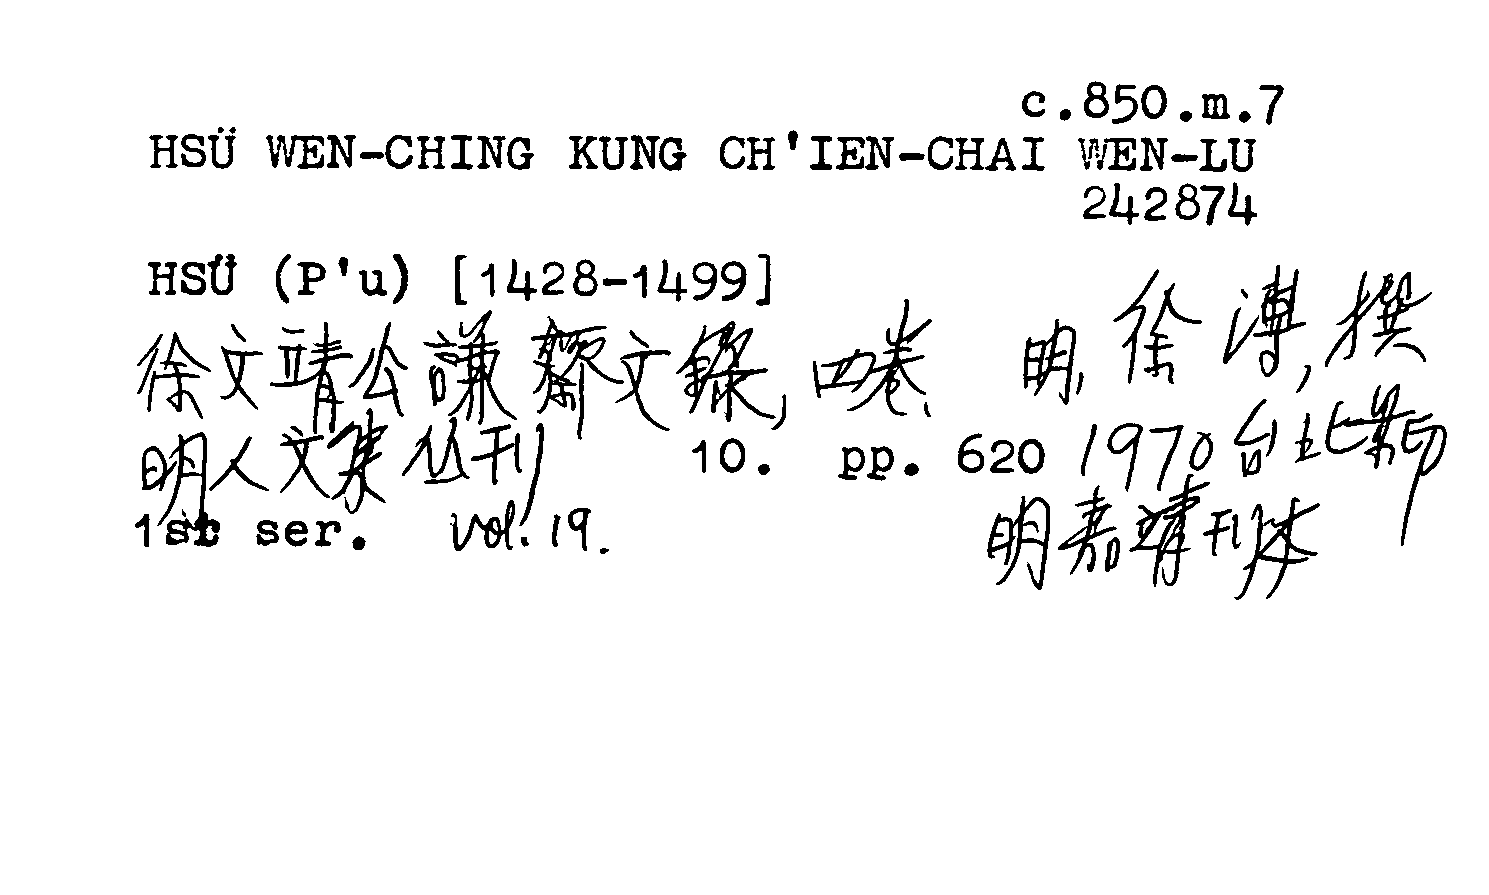 c.850.m.7
HSÜ WEN-CHING KUNG CH'IEN-CHAI WEN-LU
242874
HSÜ (P'u) [1428-1499]
徐文靖公謙齋文錄, 四卷、 明, 徐溥, 撰
明人文集丛刊 10. pp. 620 1970 台北景印
1st ser. vol. 19. 明嘉靖刊本